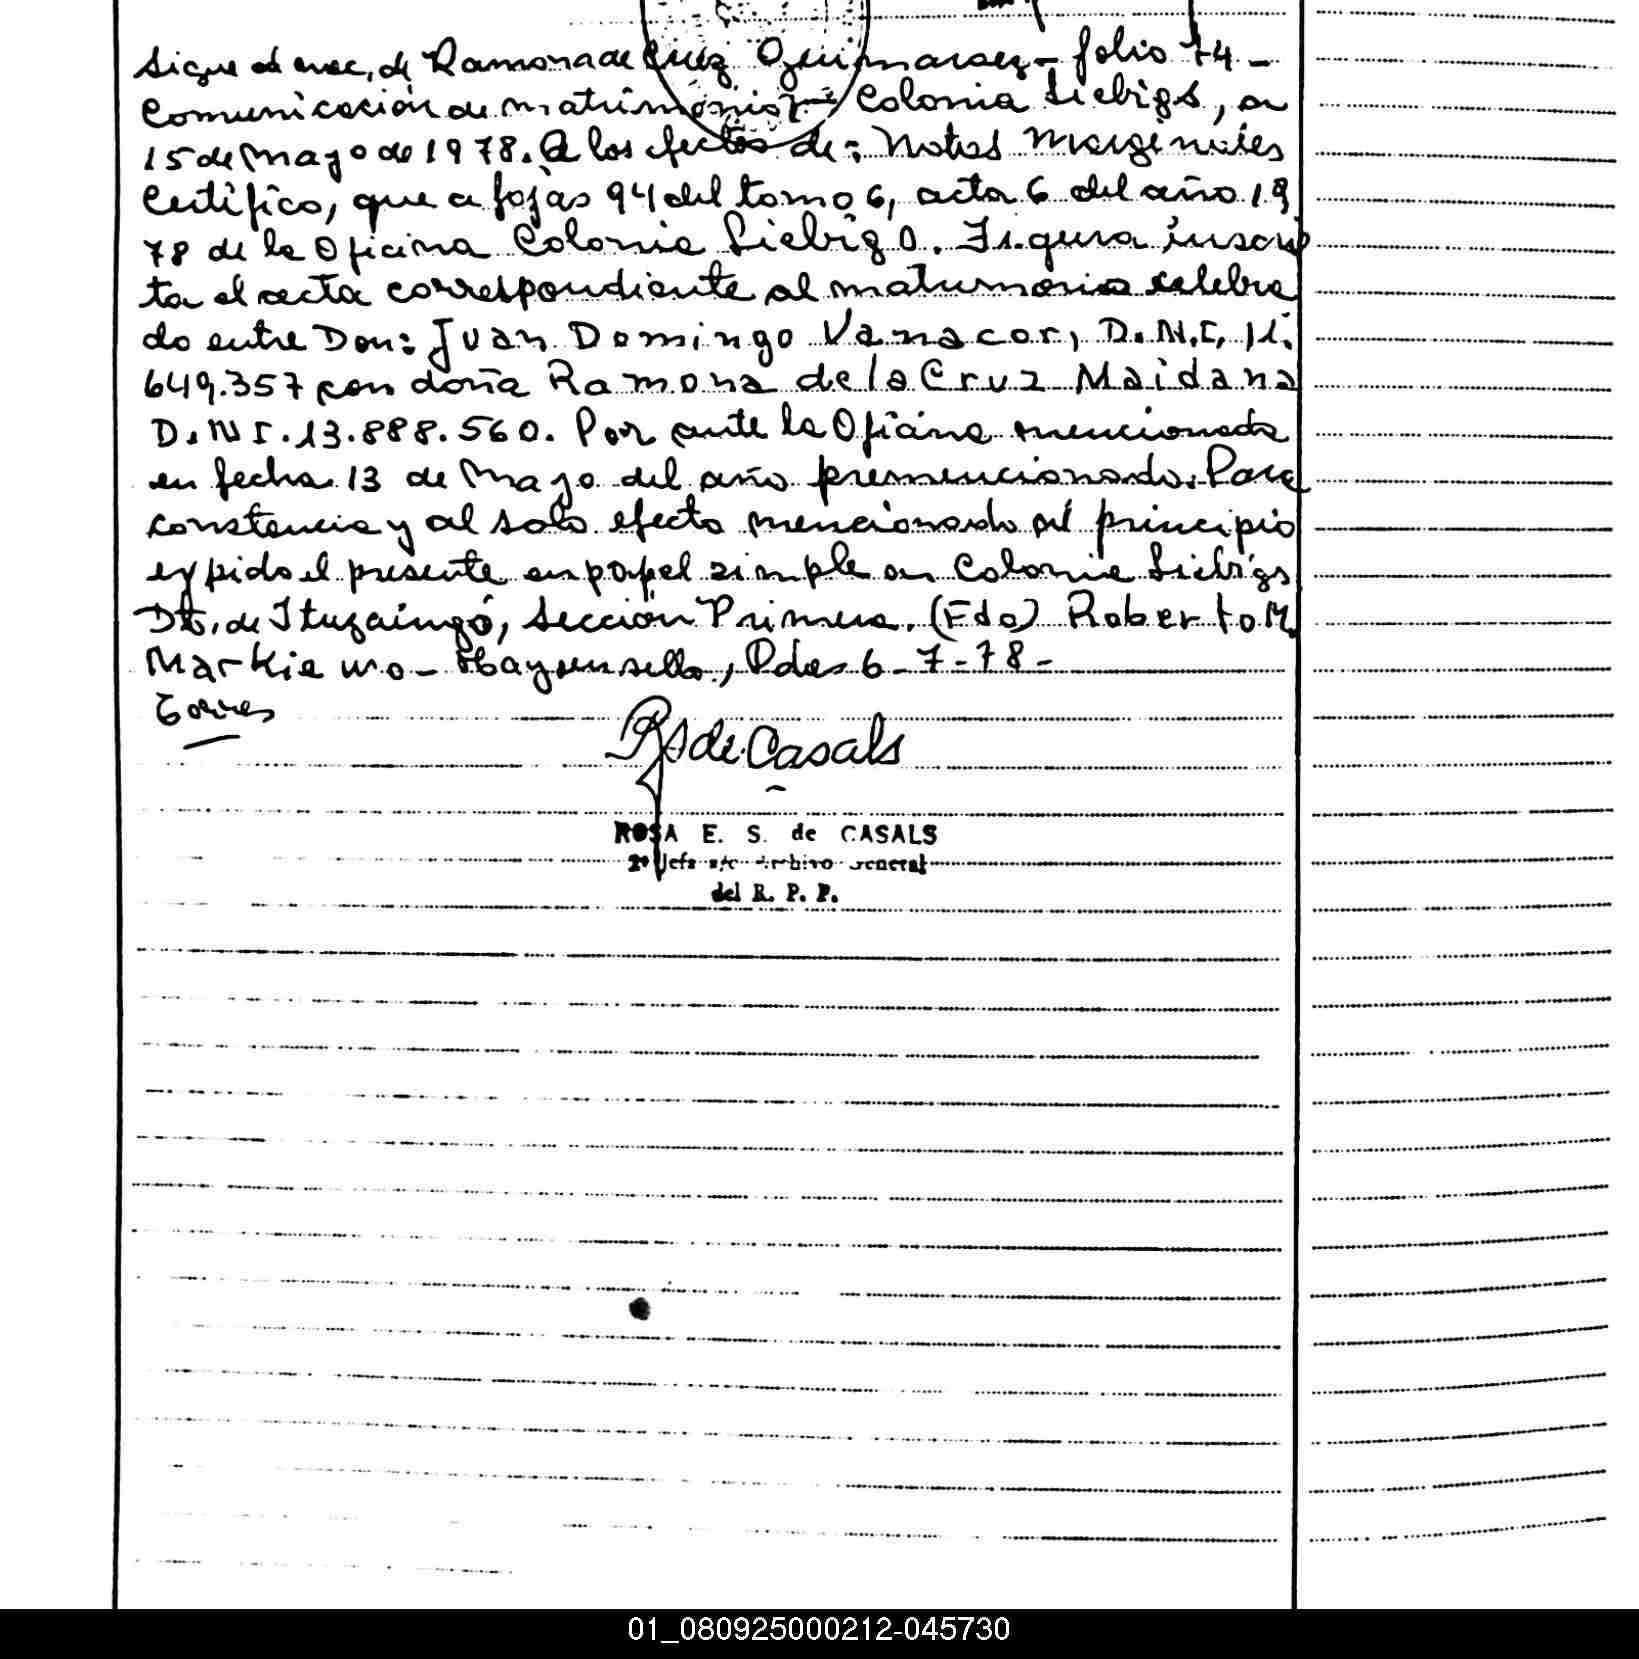 Sigue al nac, de Ramona de Cruz Oguimaraez - folio 74 -
Comunicación de matrimonio - Colonia Liebigs, a
15 de Mayo de 1978. A los efectos de: Notas Marginales
Certifico, que a fojas 94 del tomo 6, acta 6 del año 19
78 de la Oficina Colonia Liebigs. Figura inscrip
ta el acta correspondiente al matrimonio celebra
do entre Don: Juan Domingo Vanacor, D.N.I. 11.
649.357 con doña Ramona de la Cruz Maidana
D.NI.13.888.560. Por ante la Oficina mencionada
en fecha 13 de Mayo del año premencionado. Para
constancia y al solo efecto mencionado al principio
expido el presente en papel simple en Colonia Liebigs
Dto. de Ituzaingó, Sección Primera. (Fdo) Roberto M.
Markie wo - Hay un sello, Pdas 6-7-78-
Torres
RS de Casals
ROSA E. S. de CASALS
2º Jefa a/c Archivo General
del R. P. P.
01_080925000212-045730